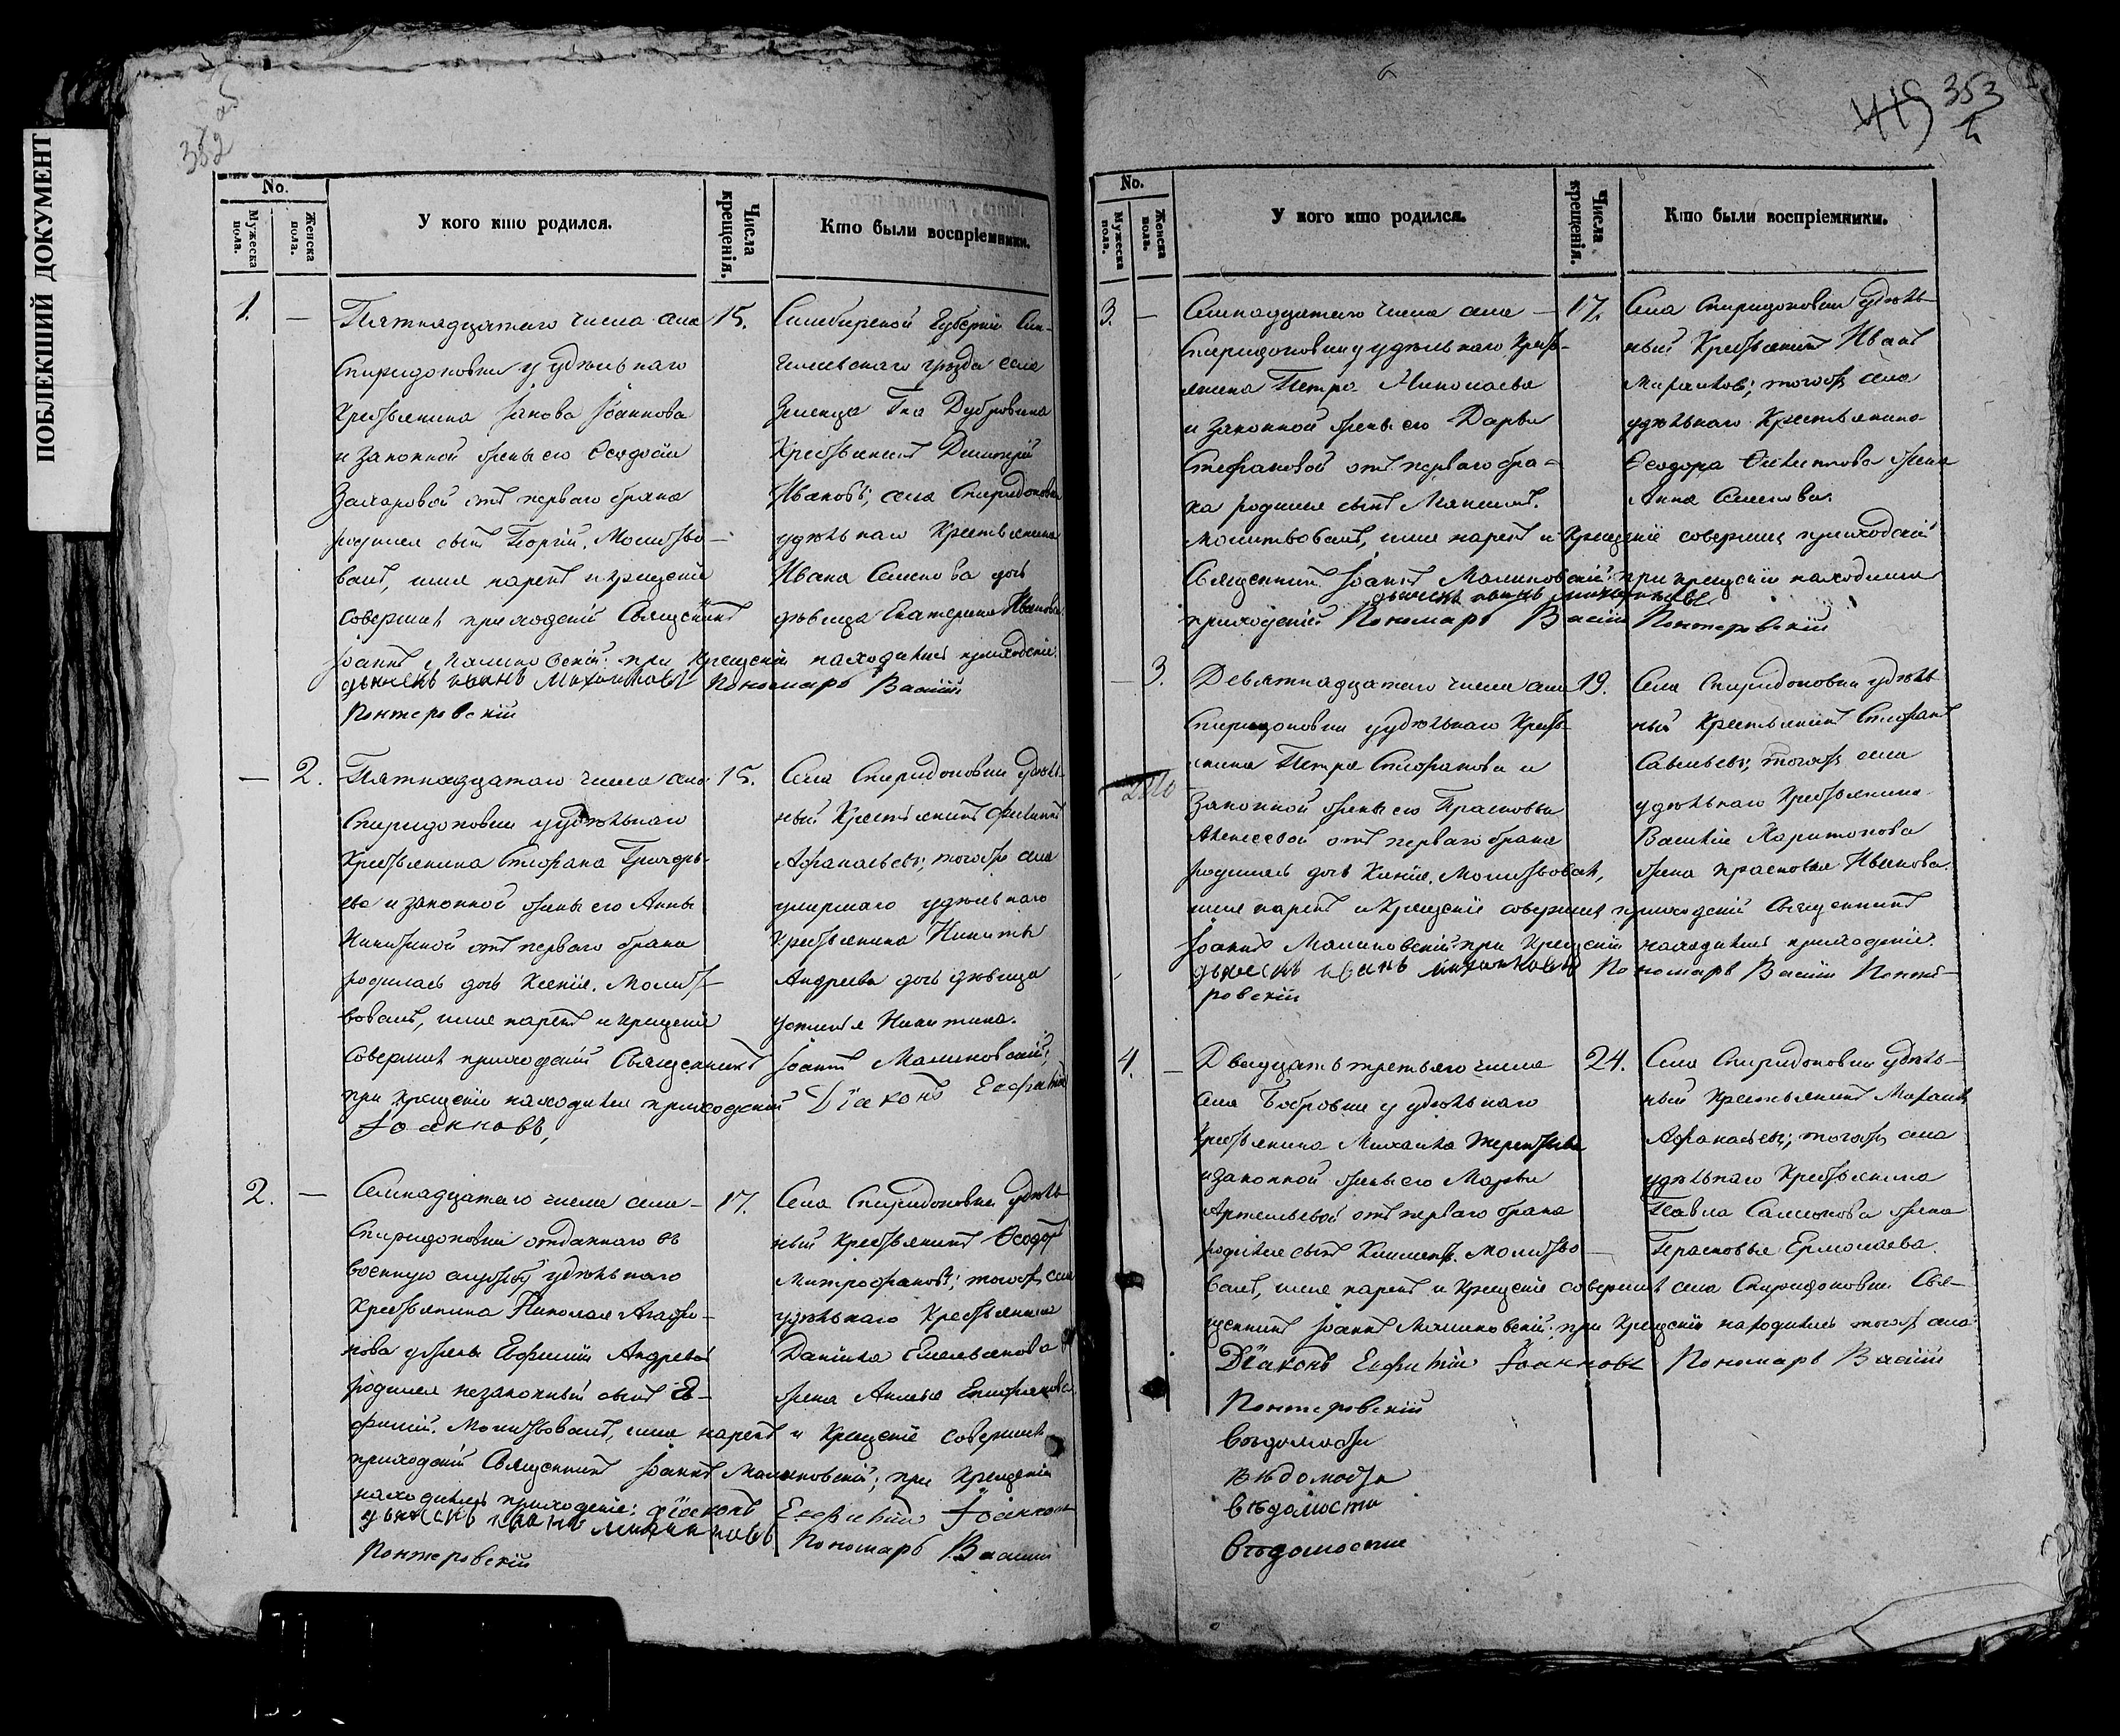 ПОБЛЕКШИЙ ДОКУМЕНТ
352 об
No.
Мужеска пола.
Женска пола.
У кого кто родился.
Числа крещенія.
Кто были воспріемники.
1. — Пятнадцатаго числа села
Спиридоновки у удѣльнаго
Крестьянина Іакова Іоаннова
и законной жены его Ѳеодосіи
Захаровой отъ перваго брака
родился сынъ Георгій. Молитво-
валъ, имя нарекъ и крещеніе
совершилъ приходскій Священникъ
Іоаннъ Малиновскій: при Крещеніи находились приходскіе:
дьячекъ иванъ Михаиловъ Пономарь Василій
Понтеровскій
15.
Симбирской Губерніи Син-
гилеевскаго уѣзда села
Дубровина
Крестьянинъ Димитрій
Ивановъ; села Спиридоновки
удѣльнаго Крестьянина
Ивана Семенова дочь
дѣвица Екатерина Иванова
— 2. Пятнадцатаго числа села
Спиридоновки у удѣльнаго
Крестьянина Стефана Григорь-
ева и законной жены его Анны
Никитиной отъ перваго брака
родилась дочь Ксенія. Молит-
вовалъ, имя нарекъ и крещеніе
совершилъ приходскій Священникъ Іоаннъ Малиновскій;
при крещеніи находился приходскій Діаконъ Евфимій
Іоанновъ,
15.
Села Спиридоновки удѣль-
ный Крестьянинъ Филиппъ
Афанасьевъ; тогожъ села
умершаго удѣльнаго
Крестьянина Никиты
Андреева дочь дѣвица
устинья Никитина.
2. — Семнадцатаго числа села
Спиридоновки отданнаго въ
военную службу удѣльнаго
Крестьянина Николая Агафо-
нова у жены Евфиміи Андреевой
родился незаконный сынъ Е-
фимій. Молитвовалъ, имя нарекъ и Крещеніе совершилъ
приходскій Священникъ Іоаннъ Малиновскій; при Крещеніи
находились приходскіе: діаконъ Евфимій Іоанновъ
дьячекъ иванъ михаиловъ Пономарь Василій
Понтеровскій
17.
Села Спиридоновки удѣль-
ный Крестьянинъ Ѳеодоръ
Митрофановъ; тогожъ села
удѣльнаго Крестьянина
Даніила Емельянова
жена
443 353
No.
Мужеска пола.
Женска пола.
У кого кто родился.
Числа крещенія.
Кто были воспріемники.
3. — Семнадцатаго числа села
Спиридоновки у удѣльнаго Крес-
янина Петра Николаева
и законной жены его Дарьи
Стефановой отъ перваго бра-
ка родился сынъ
Молитвовалъ, имя нарекъ и Крещеніе совершилъ приходскій
Священникъ Іоаннъ Малиновскій: при крещеніи находились
дьячекъ иванъ михаиловъ
приходскій Пономарь Василій Понтеровскій
17.
Села Спиридоновки удѣль-
ный Крестьянинъ Иванъ
тогожъ села
удѣльнаго Крестьянина
Ѳеодора Филиппова жена
Анна Семенова.
— 3. Девятнадцатаго числа села
Спиридоновки у удѣльнаго Кресть-
янина Петра Стефанова и
законной жены его Прасковьи
Алексеевой отъ перваго брака
родилась дочь Ксенія. Молитвовалъ,
имя нарекъ и Крещеніе совершилъ приходскій Священникъ
Іоаннъ Малиновскій: при Крещеніи находились приходскіе:
дьячекъ иванъ михаиловъ Пономарь Василій Понте-
ровскій
19.
Села Спиридоновки удѣль-
ный Крестьянинъ Стефанъ
Савельевъ; тогожъ села
удѣльнаго Крестьянина
Василія Харитонова
жена Прасковья Иванова.
4. — Двадцать третьяго числа
села Бобровки у удѣльнаго
Крестьянина Михаила Терентьева
и законной жены его Марьи
Артемьевой отъ перваго брака
родился сынъ Климентъ. Молитво-
валъ, имя нарекъ и Крещеніе совершилъ села Спиридоновки Свя-
щенникъ Іоаннъ Малиновскій: при Крещеніи находились тогожъ села
Діаконъ Евфимій Іоанновъ Пономарь Василій
Понтеровскій
24.
Села Спиридоновки удѣль-
ный Крестьянинъ Михаилъ
Афанасьевъ; тогожъ села
удѣльнаго Крестьянина
Павла Самсонова жена
Прасковья Ермолаева.
вѣдомости
вѣдомости
вѣдомости
вѣдомости